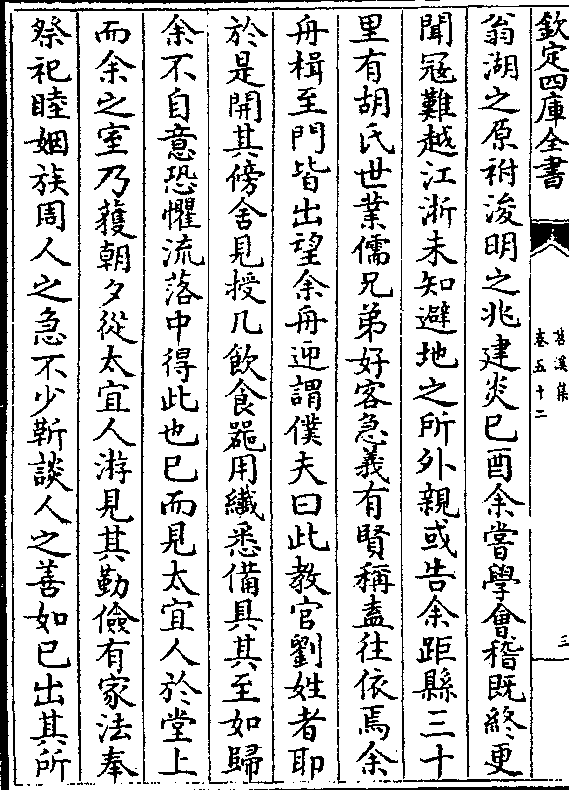 欽定四庫全書
苕溪集
卷五十二
三
翁湖之原祔浚明之兆建炎已酉余嘗學會稽既終更
聞冦難越江浙未知避地之所外親或告余距縣三十
里有胡氏世業儒兄弟好客急義有賢稱盍往依焉余
舟楫至門皆出望余舟迎謂僕夫曰此教官劉姓者耶
於是開其傍舍見授几飲食噐用纎悉備具其至如歸
余不自意恐懼流落中得此也已而見太宜人於堂上
而余之室乃蕿朝夕從太宜人游見其勤儉有家法奉
祭祀睦姻族周人之急不少靳談人之善如已出其所